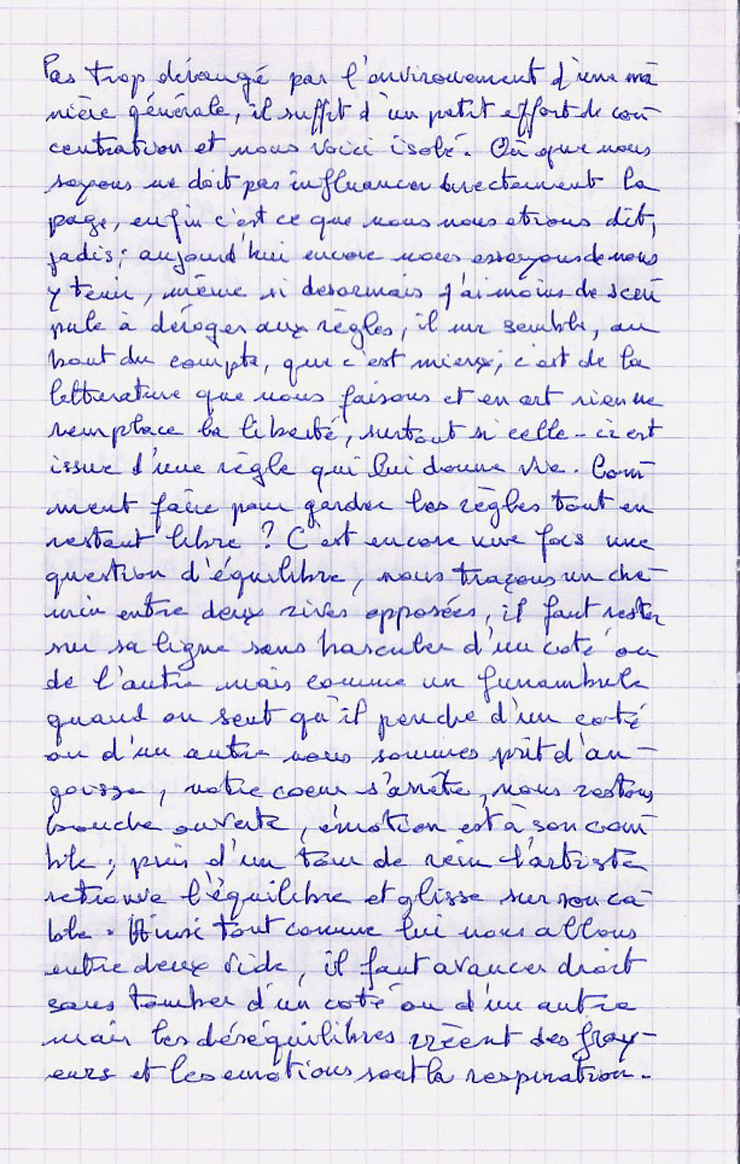 Pas trop dérangé par l'environnement d'une ma
nière générale, il suffit d'un petit effort de con
centration et nous voici isolé. Où que nous
soyons ne doit pas influancer directement la
page, enfin c'est ce que nous nous etions dit,
jadis; aujourd'hui encore nous essayons de nous
y tenir, même si desormais j'ai moins de scru
pule à déroger aux règles, il me semble, au
bout du compte, que c'est mieux; c'est de la
litterature que nous faisons et en art rien ne
remplace la liberté, surtout si celle-ci est
issue d'une règle qui lui donne vie. Com
ment faire pour garder les règles tout en
restant libre ? C'est encore une fois une
question d'équilibre, nous traçons un che
min entre deux rives opposées, il faut rester
sur sa ligne sans basculer d'un coté ou
de l'autre mais comme un funambule
quand on sent qu'il penche d'un coté
ou d'un autre nous sommes prit d'an-
goisse, notre coeur s'arrête, nous restons
bouche ouverte, émotion est à son com
ble; puis d'un tour de rein l'artiste
retrouve l'équilibre et glisse sur son ca
ble. Ainsi tout comme lui nous allons
entre deux vide, il faut avancer droit
sans tomber d'un coté ou d'un autre
mais les déséquilibres créent des fray-
eurs et les emotions sont la respiration.